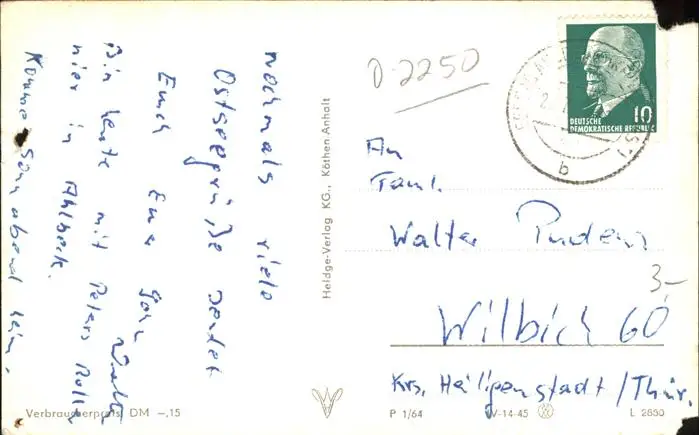 Nochmals viele
Ostseegrüße sendet
Euch Euer Sohn
Walter
Bin heute mit Peters Roller
hier in Ahlbeck.
Komme Sonnabend heim.
Verbraucherpreis DM –,15
Heldge-Verlag KG., Köthen Anhalt
D-2250
10
DEUTSCHE
DEMOKRATISCHE REPUBLIK
b
An
Faml.
Walter
3,-
Wilbich 60
Krs. Heiligenstadt/Thür.
P 1/64
IV-14-45
L 2830